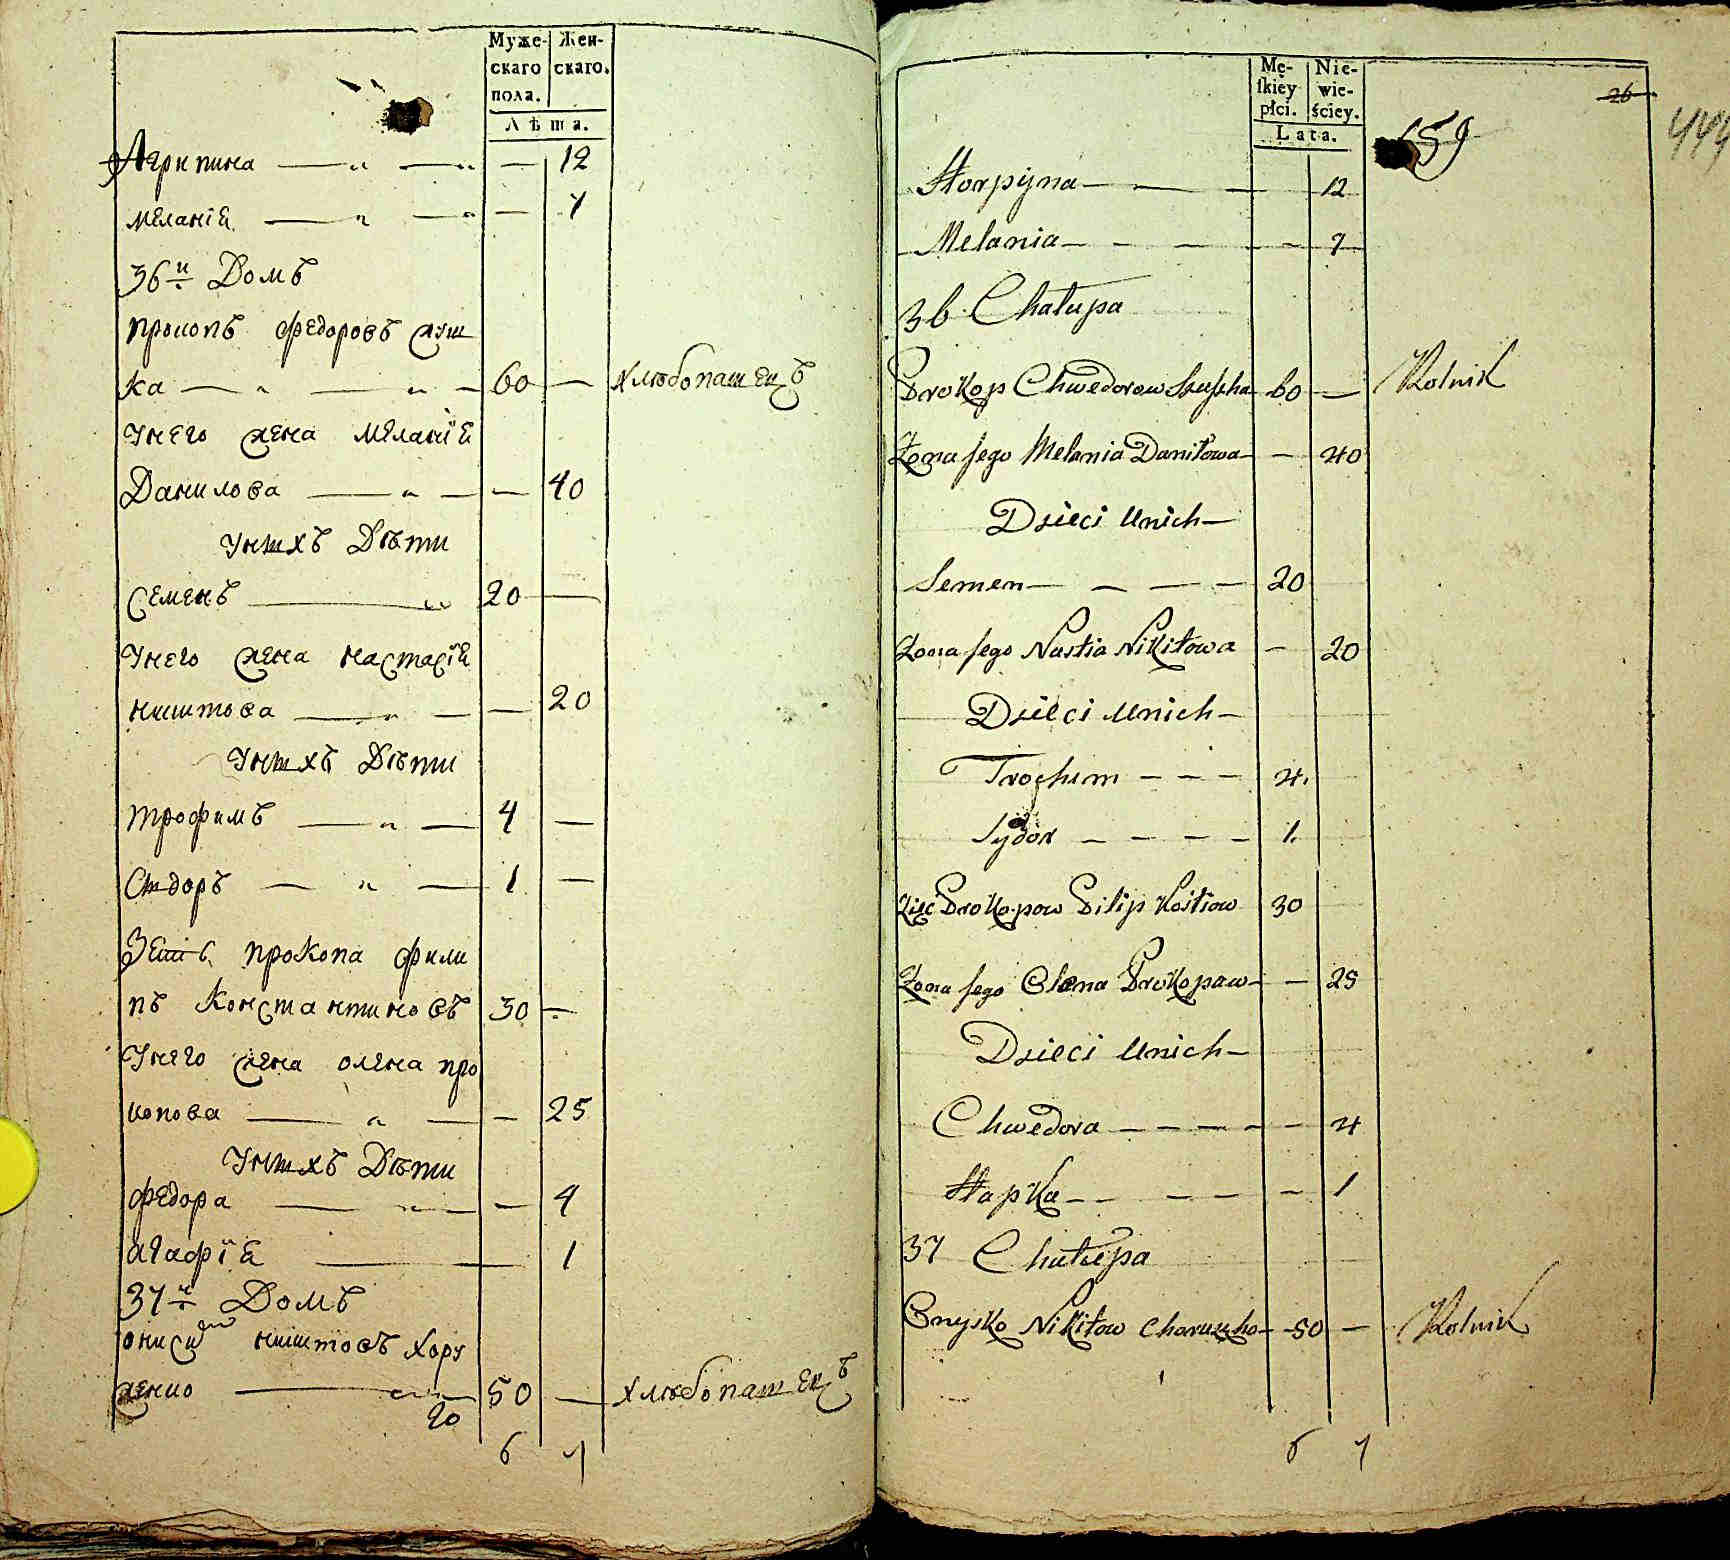 Муже- Жен-
скаго скаго.
пола.
Лѣта.
Агрипина — " — " — 12
Меланіѣ — " — " — 7
36й Домъ
Прокопъ Федоровъ Луш
ка — " — " — 60 — Хлѣбопашецъ
Унего жена Меланїѣ
Данилова — " — — 40
Унихъ Дѣти
Семенъ — " 20 —
Унего жена Настасїѣ
Никитова — " — — 20
Унихъ Дѣти
Трофимъ — " — 4 —
Сидоръ — " — 1 —
Зеть Прокопа Фили
пъ Константиновъ 30 —
Унего жена Олена Про
копова — " — — 25
Унихъ Дѣти
Федора — " — — 4
Агафїѣ — 1
37й Домъ
Ониси Никитовъ Хору
женко — " 50 — Хлѣбопашецъ
20
6 7
Mę- Nie-
skiéy wie-
płci. ściey.
Lata.
26
159
444
Horpijna — — — 12
Melania — — — — 7
36 Chałupa
Prokop Chwedorow 60 — Rolnik
Żona Jego Melania Daniłowa — 40
Dzieci Unich —
Semen — — — — 20
Żona Jego Nastia Nikitowa — 20
Dzieci Unich —
Trochim — — — 4.
Sydor — — — — 1.
Zięć Prokopow Pilip Kostiow 30
Żona Jego Olena Prokopow — — 25
Dzieci Unich —
Chwedora — — — — — 4
Hapka — — — — — 1
37 Chałupa
Onysko Nikitow Choruzko — 50 — Rolnik
6 7